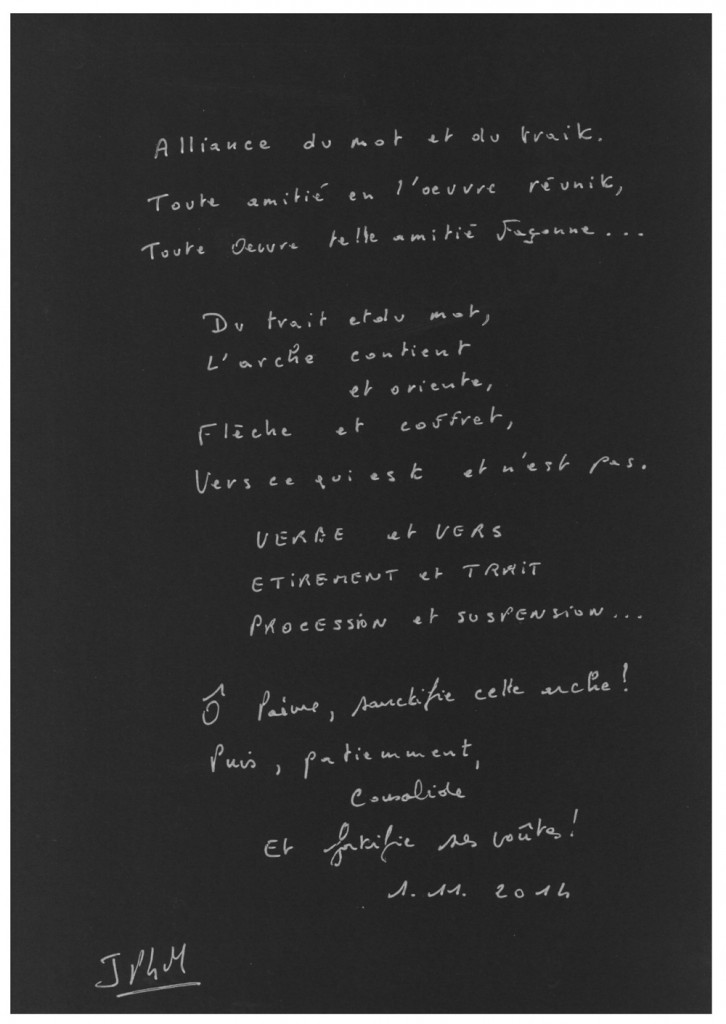 Alliance du mot et du trait.
Toute amitié en l'oeuvre réunit,
Toute Oeuvre telle amitié façonne...
Du trait et du mot,
L'arche contient
et oriente,
Flèche et coffret,
Vers ce qui est et n'est pas.
VERBE et VERS
ETIREMENT et TRAIT
PROCESSION et SUSPENSION...
Ô Poème, sanctifie cette arche!
Puis, patiemment,
Consolide
Et fortifie ses voûtes!
1.11.2014
JPhM